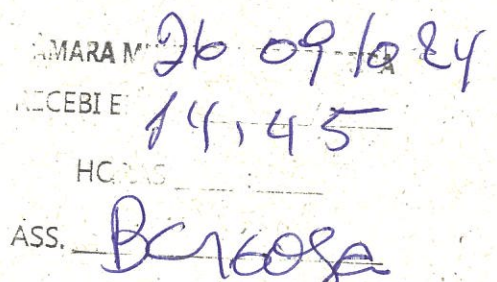 CÂMARA M 26 09 2024
RECEBI E 14,45
HORAS
ASS. Barbosa